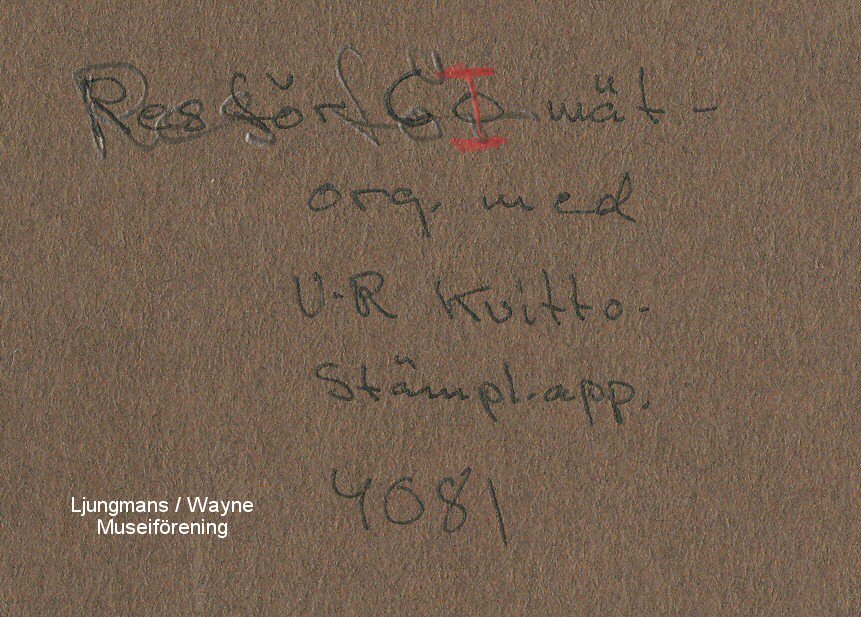 Res för mät-
org. med
V-R Kvitto-
Stämpl.app.
4081
Ljungmans / Wayne
Museiförening